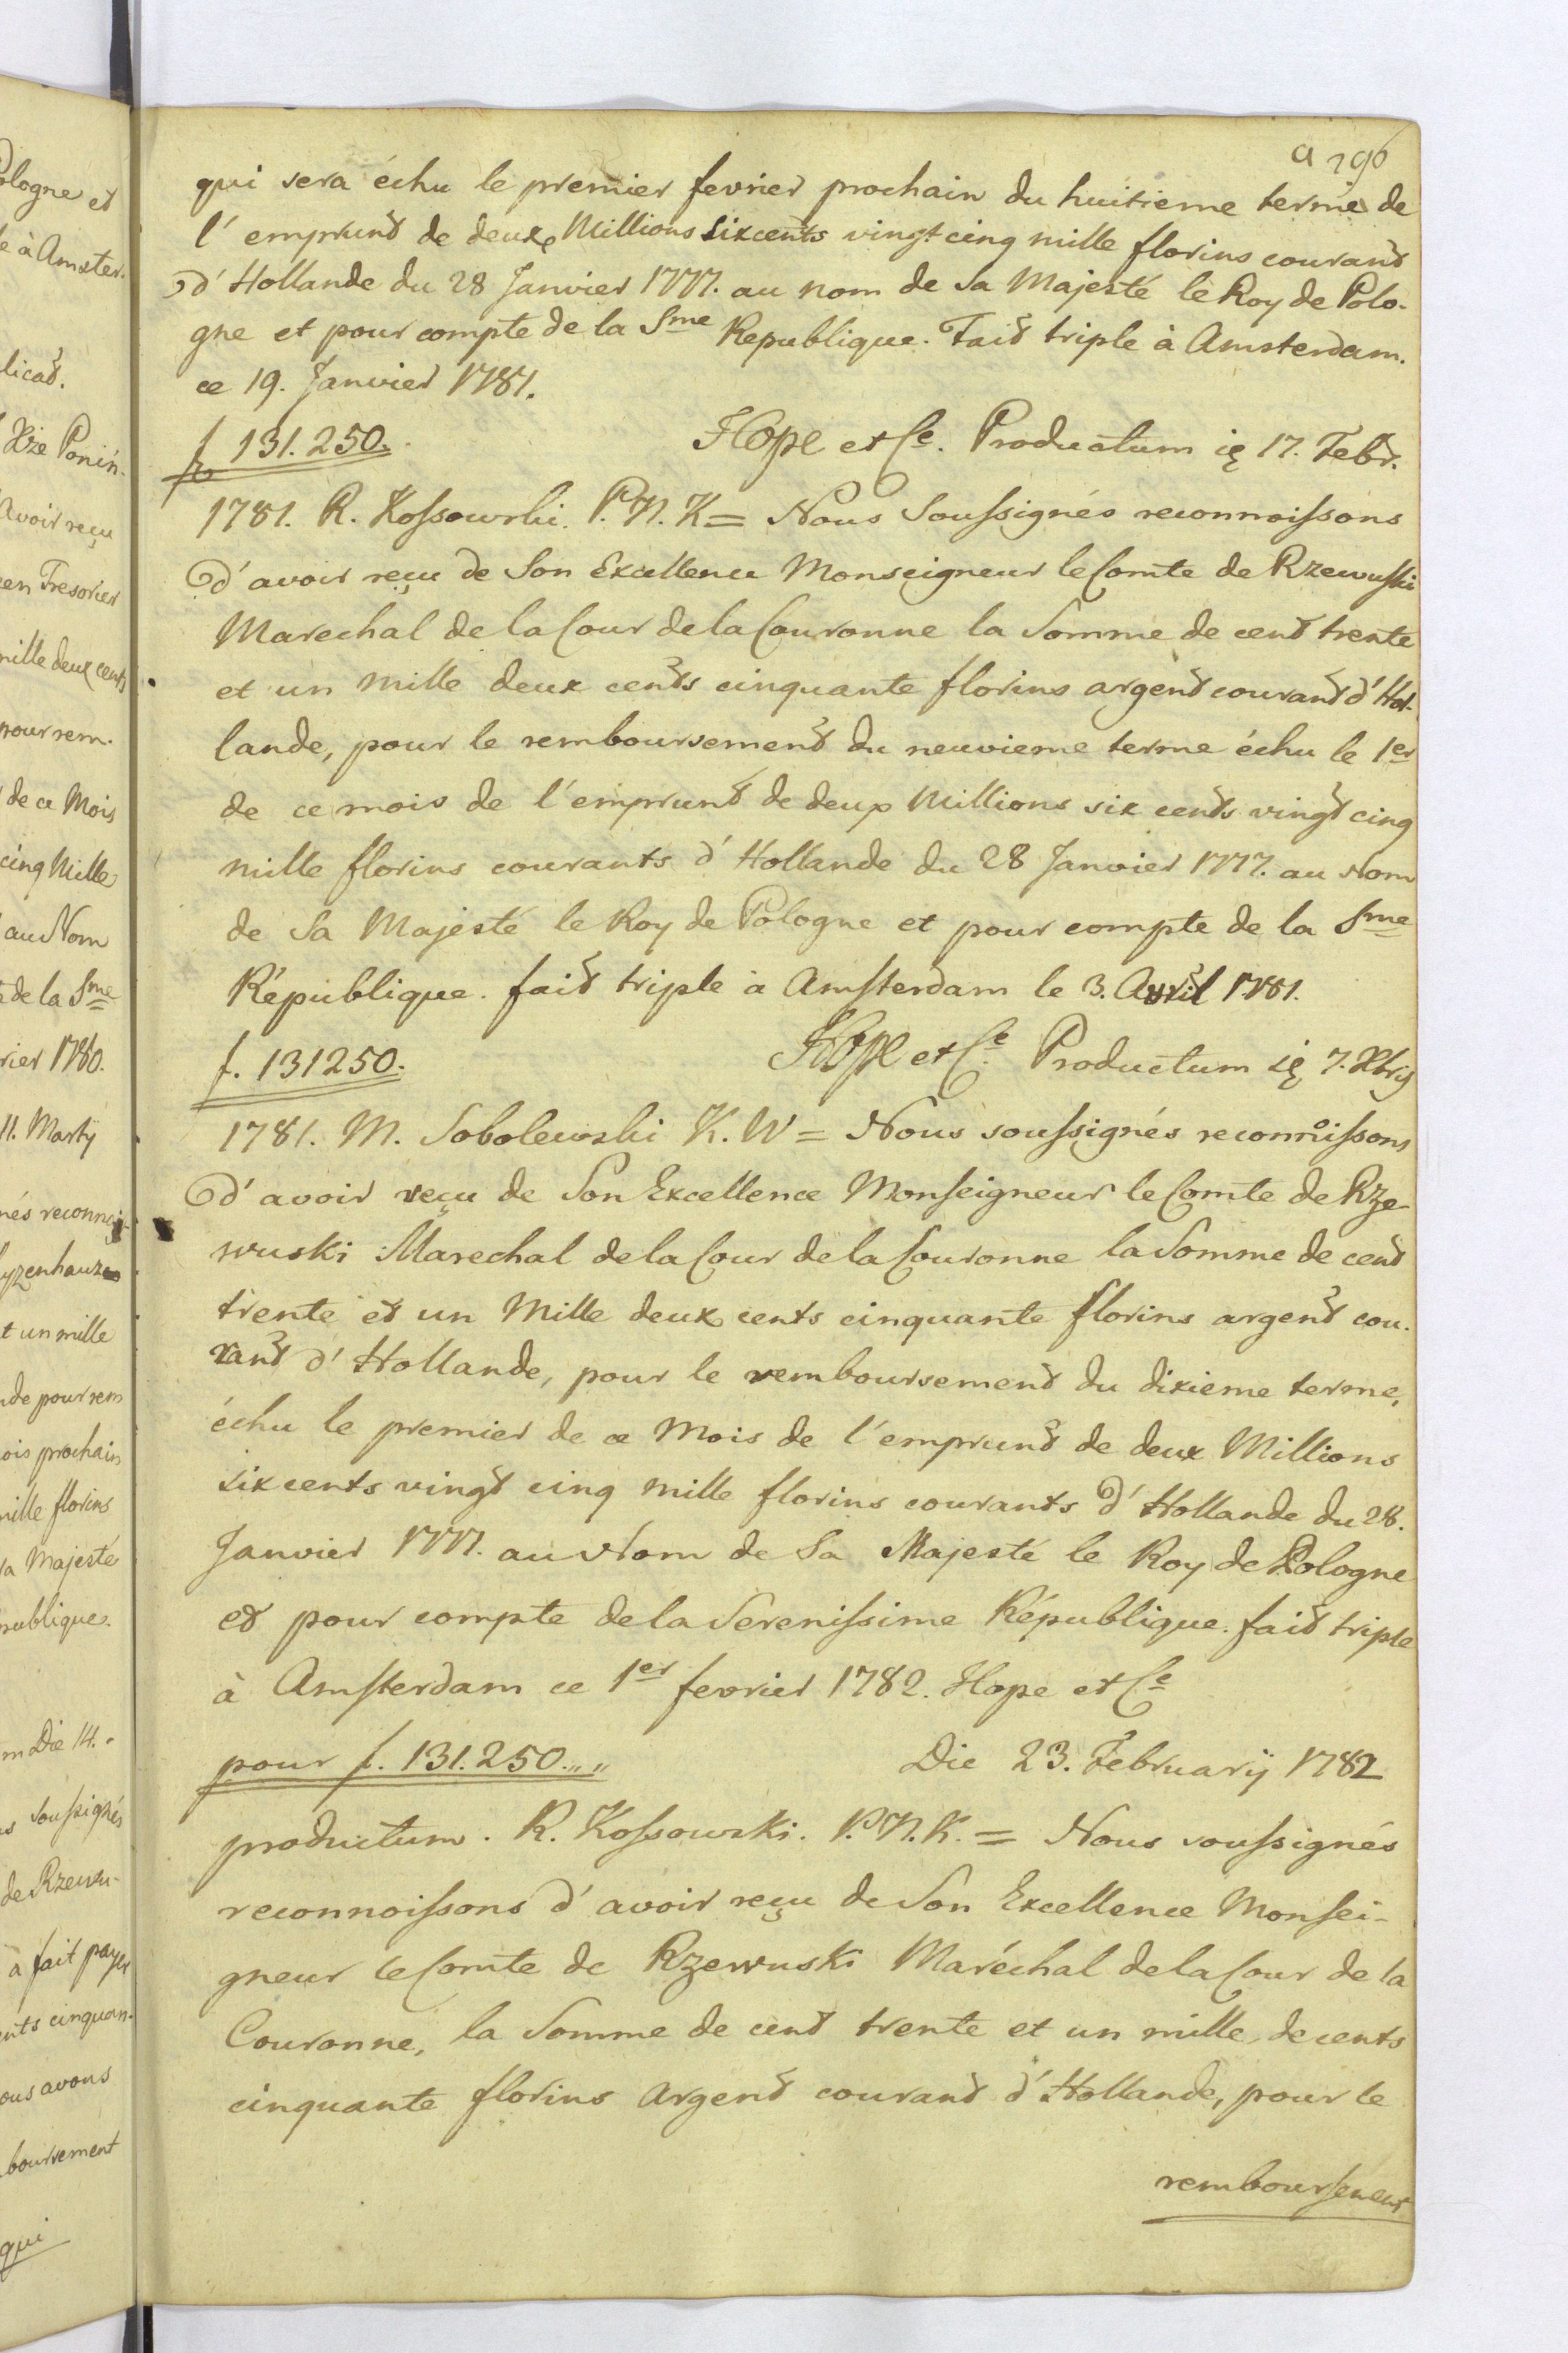 a 296
qui sera échu le premier fevrier prochain du huitieme terme de
l'emprunt de deux Millions sixcents vingt cinq mille florins courant
d'Hollande du 28 Janvier 1777. au nom de sa Majesté le Roy de Polo-
gne et pour compte de la Sme Republique. Fait triple à Amsterdam.
ce 19. Janvier 1781.
f 131.250. Hope et Ce. Productum 17. Febr.
1781. R. Kossowski. P. N. K = Nous Soussignés reconnoissons
d'avoir reçu de Son Excellence Monseigneur le Comte de Rzewuski
Marechal de la Cour de la Couronne la Somme de cent trente
et un mille deux cents cinquante florins argent courant d'Hol-
lande, pour le remboursement du neuvieme terme échu le 1er
de ce mois de l'emprunt de deux Millions six cents vingt cinq
mille florins courants d'Hollande du 28 Janvier 1777. au Nom
de Sa Majesté le Roy de Pologne et pour compte de la Sme
République. fait triple à Amsterdam le 3. Avril 1781.
f. 131250. Hope et Ce. Productum 7. Xbris
1781. M. Sobolewski K. W = Nous soussignés reconnoissons
d'avoir reçu de Son Excellence Monseigneur le Comte de Rze-
wuski Marechal de la Cour de la Couronne la Somme de cent
trente et un Mille deux cents cinquante florins argent cou-
rant d'Hollande, pour le remboursement du dixieme terme,
échu le premier de ce Mois de l'emprunt de deux Millions
six cents vingt cinq mille florins courants d'Hollande du 28.
Janvier 1777. au Nom de Sa Majesté le Roy de Pologne
et pour compte de la Serenissime République. fait triple
à Amsterdam ce 1er fevrier 1782. Hope et Ce
pour f. 131.250.,, Die 23. Februarÿ 1782
productum. R. Kossowski. P. N. K. = Nous soussignés
reconnoissons d'avoir reçu de Son Excellence Monsei-
gneur le Comte de Rzewuski Maréchal de la Cour de la
Couronne, la Somme de cent trente et un mille, de cents
cinquante florins Argent courant d'Hollande, pour le
remboursement